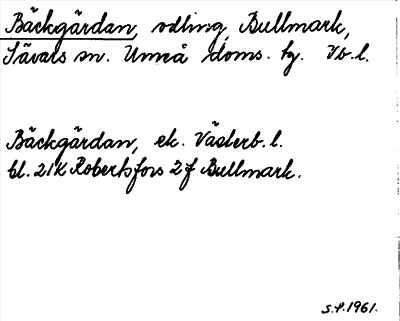 Bäckgärdan, odling, Bullmark,
Sävars sn. Umeå doms. tg. Vb. l.
Bäckgärdan, ek. Västerb. l.
bl. 21K Robertsfors 2f Bullmark.
S.P. 1961.